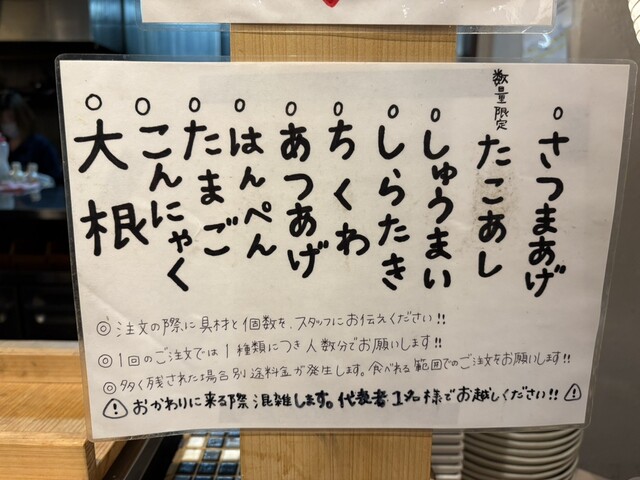 ○さつまあげ
数量限定
たこあし
○しゅうまい
○しらたき
○ちくわ
○あつあげ
○はんぺん
○たまご
○こんにゃく
○大根
◎注文の際に具材と個数を、スタッフにお伝えください!!
◎1回のご注文では1種類につき人数分でお願いします!!
◎多く残された場合別途料金が発生します。食べれる範囲でのご注文をお願いします!!
⚠おかわりに来る際混雑します。代表者1名様でお越しください!!⚠